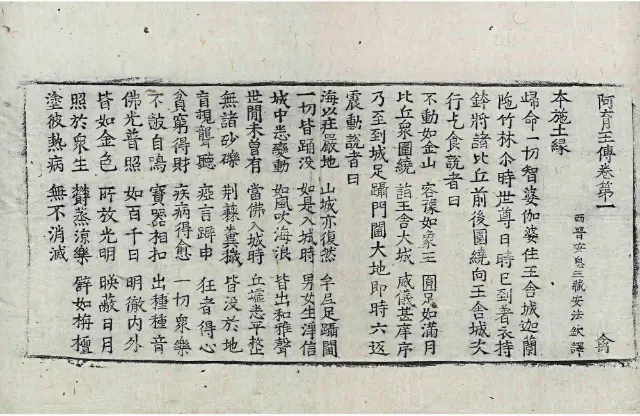 阿育王傳卷第一
西晉安息三藏安法欽譯 禽
本施土緣
歸命一切智婆伽婆住王舍城迦蘭
陁竹林尒時世尊日時已到著衣持
鉢將諸比丘前後圍繞向王舍城次
行乞食說者曰
不動如金山 容㺞如象王 圓足如滿月
比丘眾圍繞 詣王舍大城 威儀甚庠序
乃至到城足躡門閫大地即時六返
震動說者曰
海以莊嚴地 山城亦復然 牟尼足躡閫
一切皆踊没 如是入城時 男女生淨信
城中悉變動 如風吹海浪 皆出和雅聲
世間未曾有 當佛入城時 丘墟悉平整
無諸砂礫 荊棘糞穢 皆没於地
盲視聾聽 瘂言躃申 狂者得心
貧窮得財 疾病得愈 一切眾樂
不鼓自鳴 寶器相扣 出種種音
佛光普照 如百千日 明徹內外
皆如金色 所放光明 映蔽日月
照於眾生 蒸涼樂 譬如栴檀
塗彼熱病 無不消滅